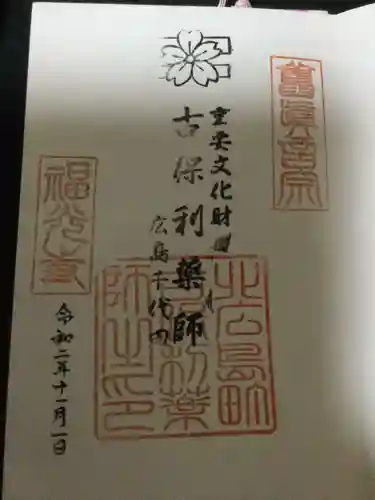 舊真言宗
重要文化財
古保利薬師
広島千代田
福光寺
北広島町
古保利薬
師之印
令和二年十一月一日